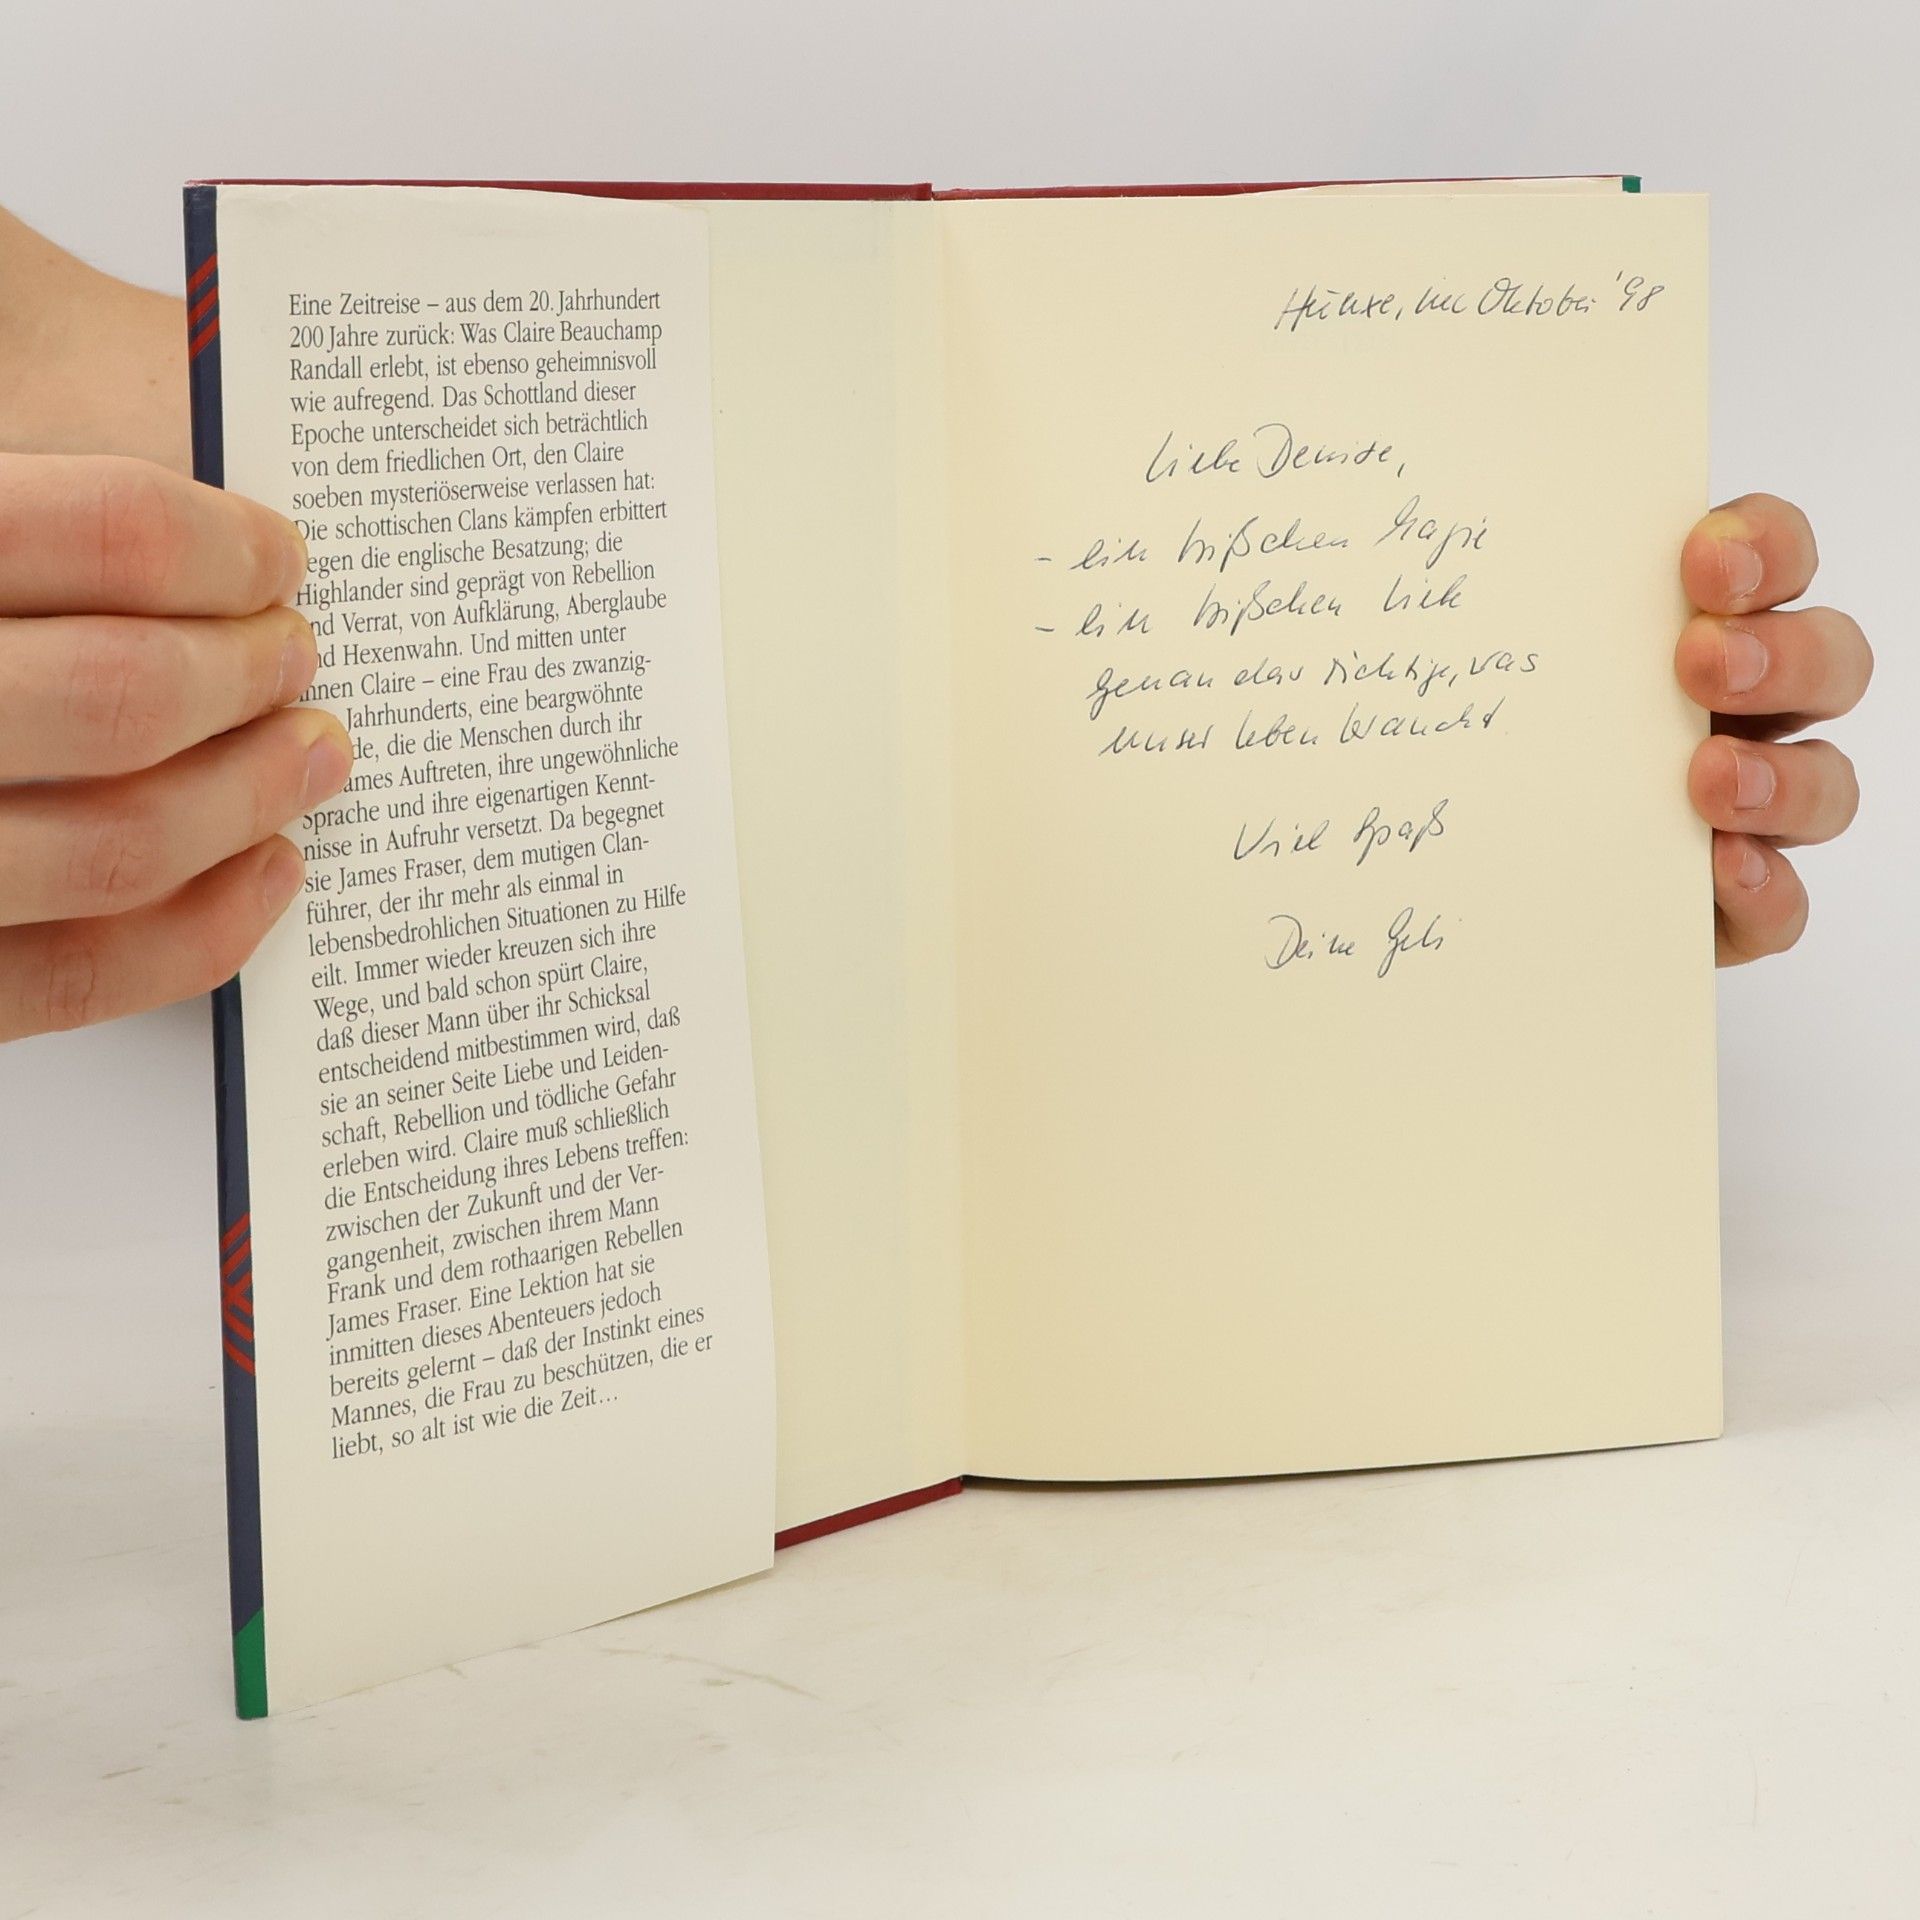 Eine Zeitreise – aus dem 20. Jahrhundert
200 Jahre zurück: Was Claire Beauchamp
Randall erlebt, ist ebenso geheimnisvoll
wie aufregend. Das Schottland dieser
Epoche unterscheidet sich beträchtlich
von dem friedlichen Ort, den Claire
soeben mysteriöserweise verlassen hat:
Die schottischen Clans kämpfen erbittert
egen die englische Besatzung; die
Highlander sind geprägt von Rebellion
nd Verrat, von Aufklärung, Aberglaube
nd Hexenwahn. Und mitten unter
hnen Claire – eine Frau des zwanzig-
Jahrhunderts, eine beargwöhnte
de, die die Menschen durch ihr
ames Auftreten, ihre ungewöhnliche
Sprache und ihre eigenartigen Kennt-
nisse in Aufruhr versetzt. Da begegnet
sie James Fraser, dem mutigen Clan-
führer, der ihr mehr als einmal in
lebensbedrohlichen Situationen zu Hilfe
eilt. Immer wieder kreuzen sich ihre
Wege, und bald schon spürt Claire,
daß dieser Mann über ihr Schicksal
entscheidend mitbestimmen wird, daß
sie an seiner Seite Liebe und Leiden-
schaft, Rebellion und tödliche Gefahr
erleben wird. Claire muß schließlich
die Entscheidung ihres Lebens treffen:
zwischen der Zukunft und der Ver-
gangenheit, zwischen ihrem Mann
Frank und dem rothaarigen Rebellen
James Fraser. Eine Lektion hat sie
inmitten dieses Abenteuers jedoch
bereits gelernt – daß der Instinkt eines
Mannes, die Frau zu beschützen, die er
liebt, so alt ist wie die Zeit...
Hünxe, im Oktober '98
Liebe Denise,
- ein bißchen Magie
- ein bißchen Liebe
genau das richtige, was
unser Leben braucht.
Viel Spaß
Deine Geli